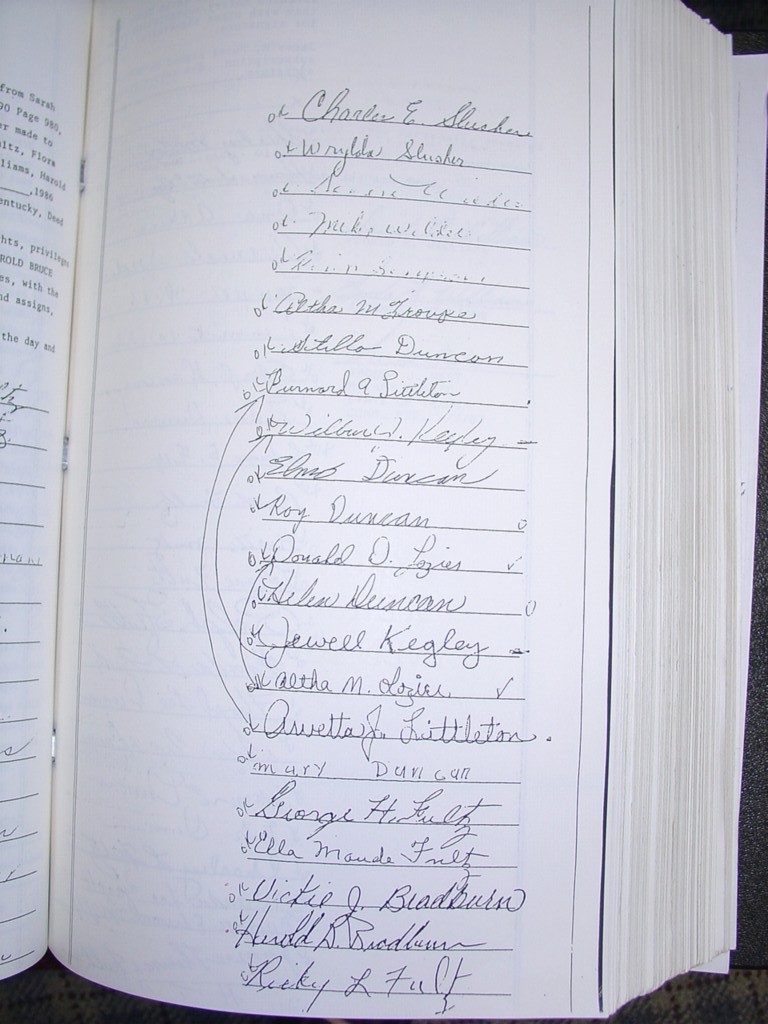 from Sarah
90 Page 980,
er made to
ultz, Flora
lliams, Harold
,1986
entucky, Deed
hts, privileges
ROLD BRUCE
es, with the
nd assigns,
the day and
ok Charles E. Slusher
ok Wrylda Slusher
ok
ok Mike Wilder
ok
ok Altha M Troupe
ok Stella Duncan
ok Burnard A Littleton
ok Wilbur W. Kegley
ok Elmo Duncan
ok Roy Duncan
ok Donald D. Lozier ✓
ok Helen Duncan
ok Jewell Kegley
ok Altha M. Lozier ✓
ok Arvetta J. Littleton
ok Mary Duncan
ok George H. Fultz
ok Ella Maude Fultz
ok Vickie J. Bradburn
ok Harold B. Bradburn
ok Ricky L Fultz